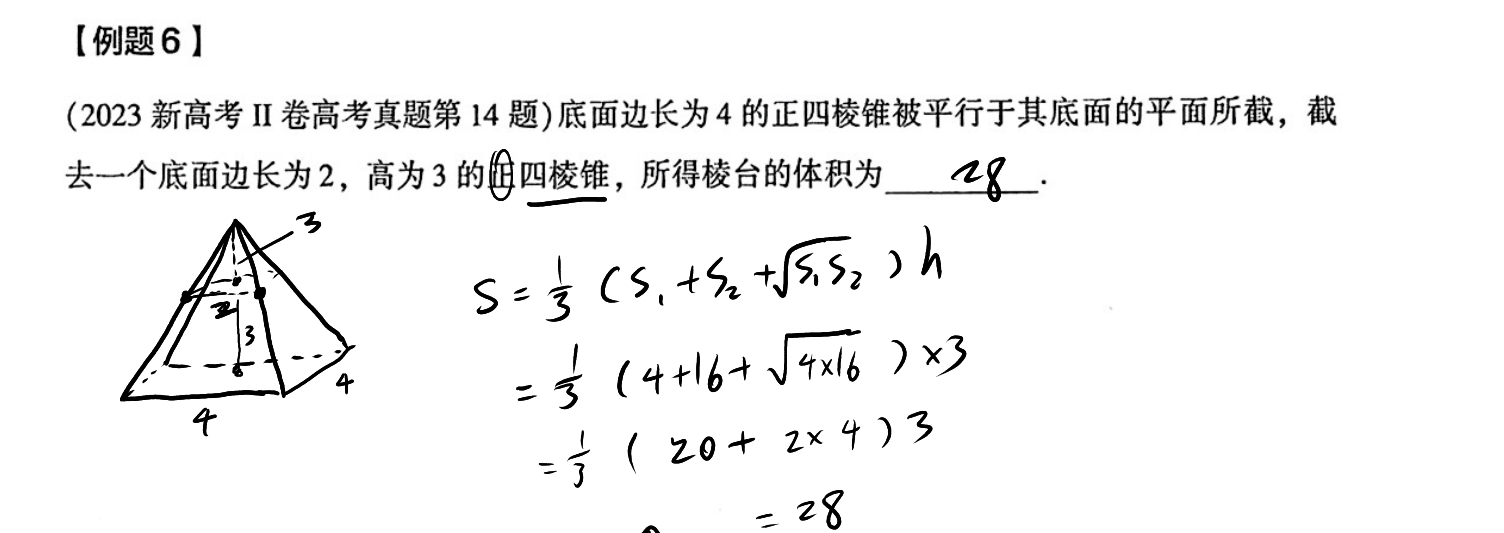 【例题6】
(2023 新高考 II 卷高考真题第 14 题)底面边长为 4 的正四棱锥被平行于其底面的平面所截，截
去一个底面边长为 2，高为 3 的正四棱锥，所得棱台的体积为 28 .
3
2
3
4
4
S = 1/3 (S₁ + S₂ + √S₁S₂) h
= 1/3 (4+16+ √4×16 ) ×3
= 1/3 ( 20 + 2× 4 ) 3
= 28